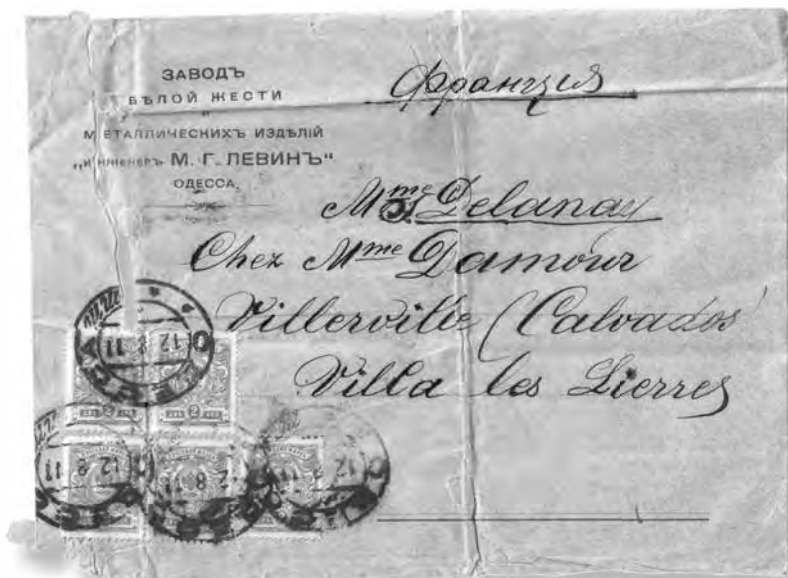 ЗАВОДЪ
БѢЛОЙ ЖЕСТИ
и
МЕТАЛЛИЧЕСКИХЪ ИЗДѢЛІЙ
„ИНЖЕНЕРЪ М. Г. ЛЕВИНЪ“
ОДЕССА.
Франція
Mme S. Delanay
Chez Mme Damour
Villerville (Calvados
Villa les Lierres
12 8 11
2
12 8 11
8
12